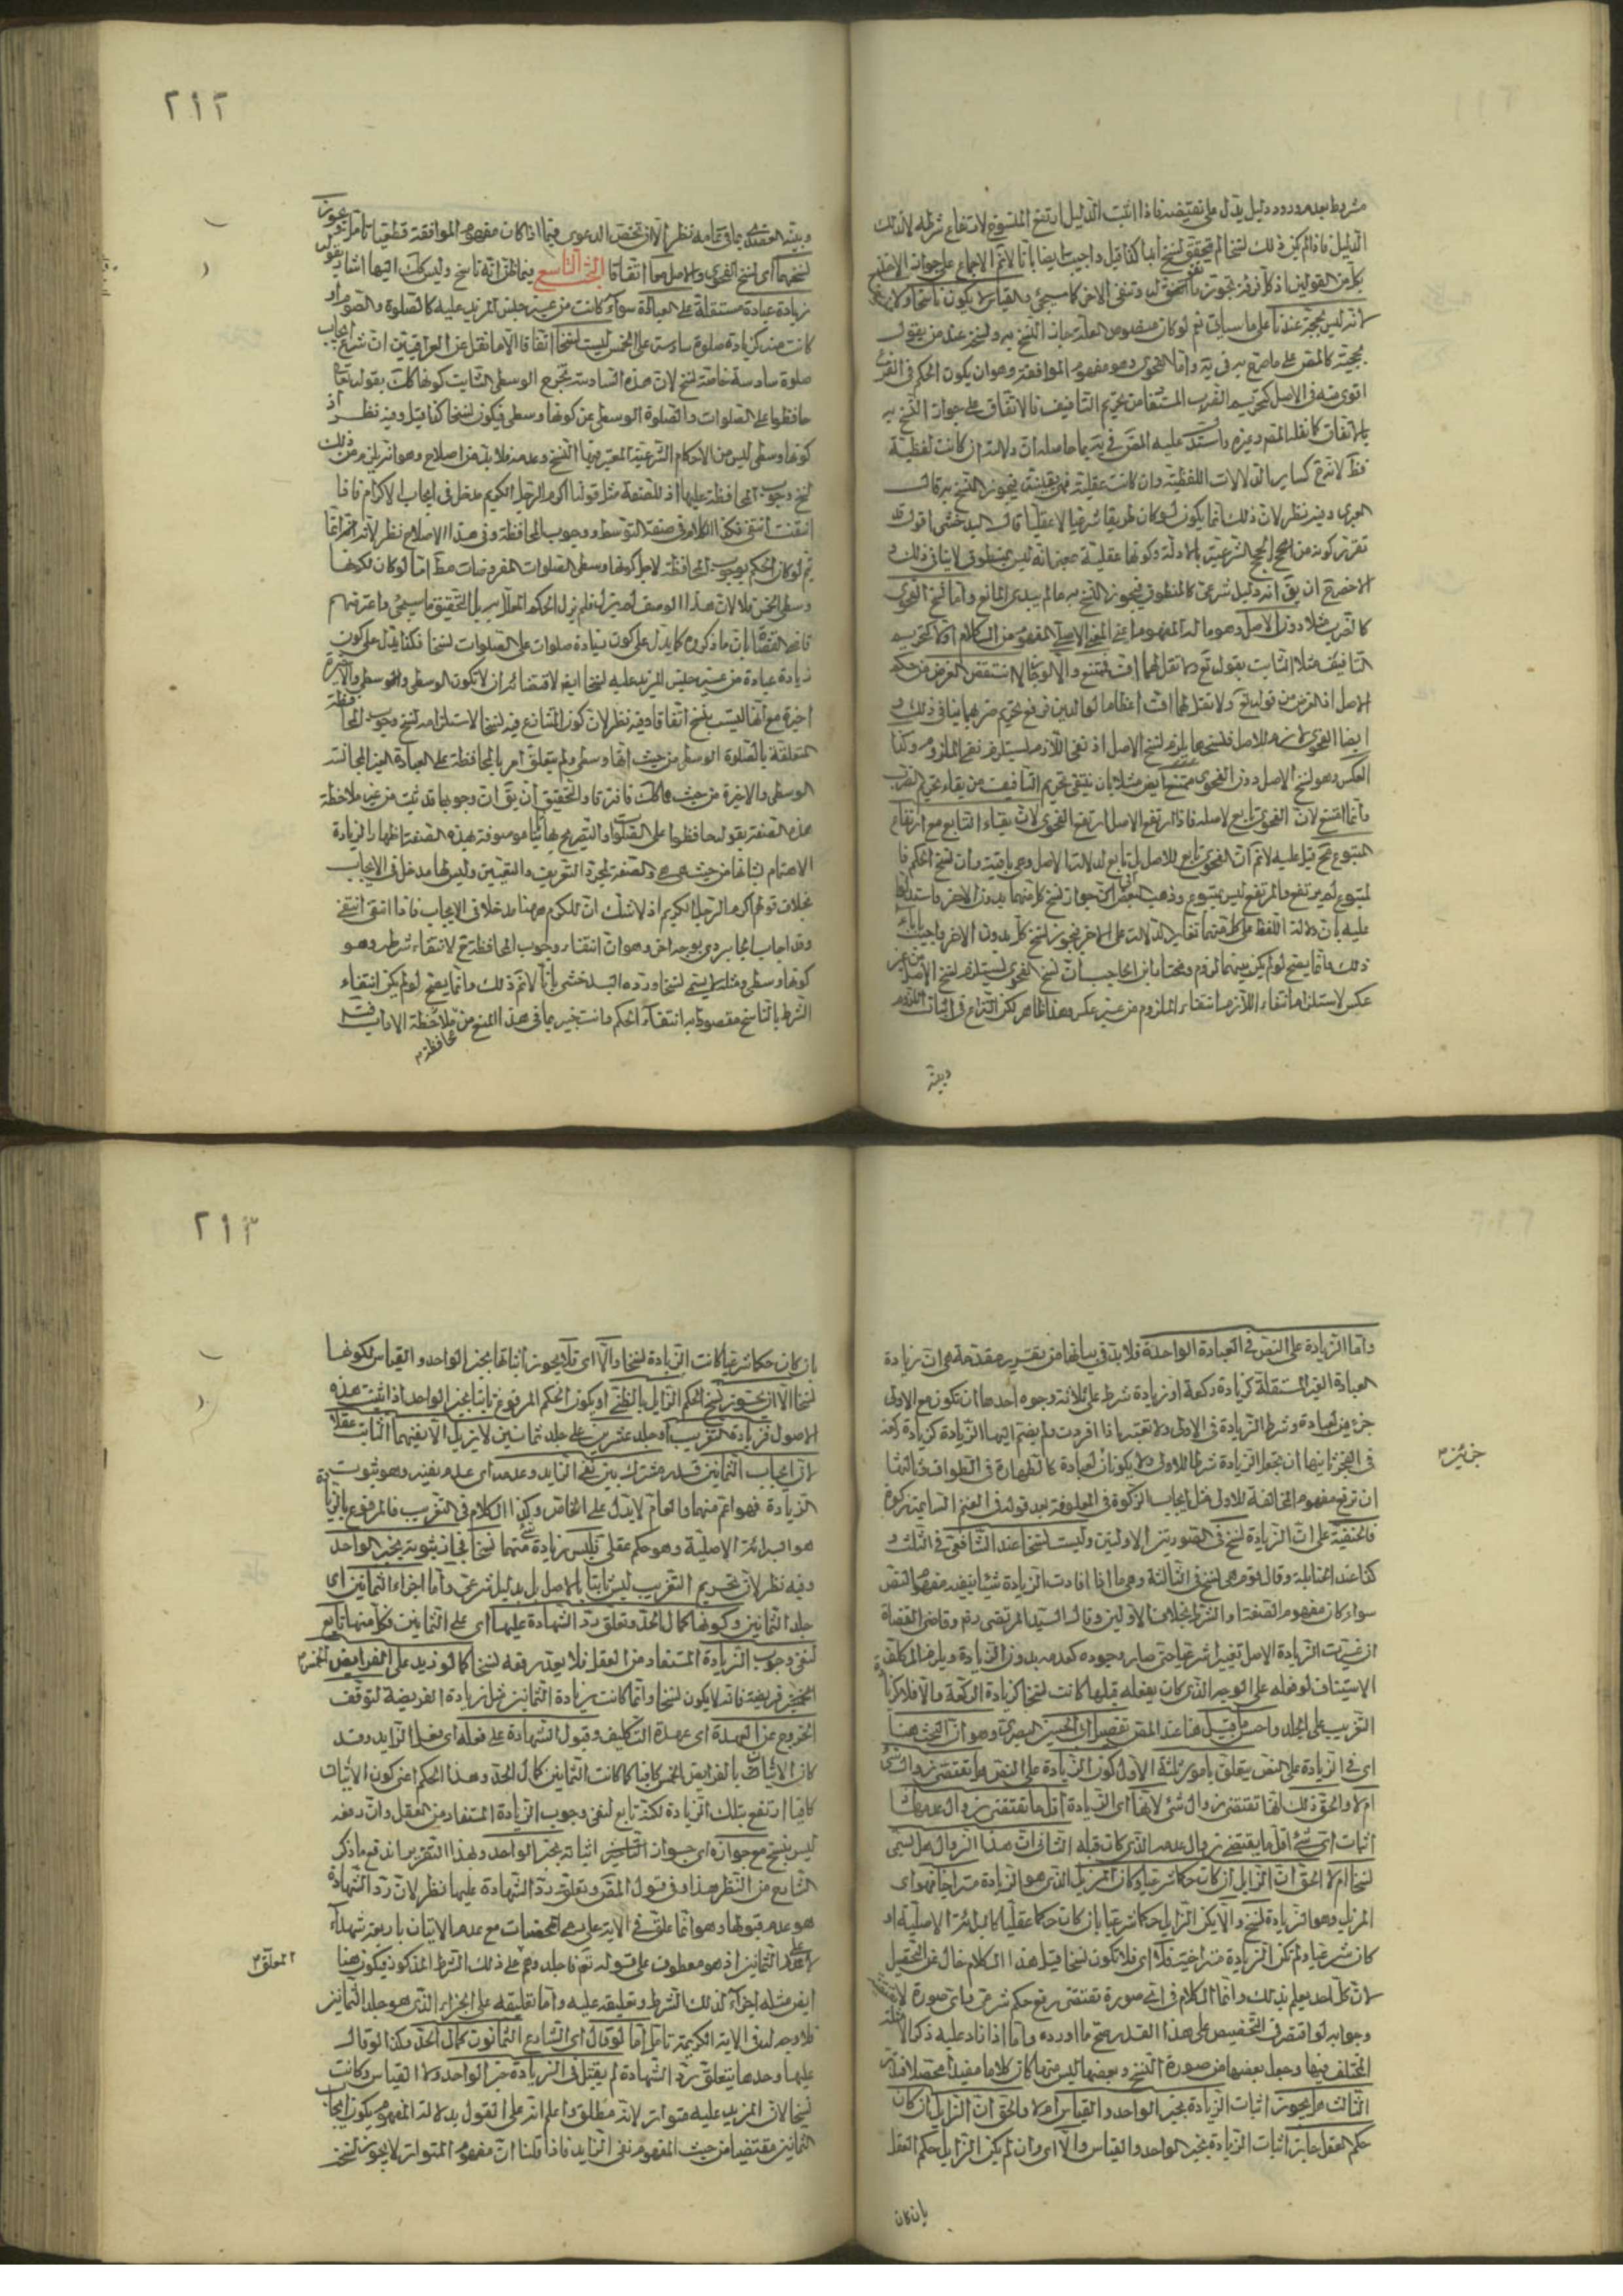 مشروط بعدم ورود دليل يدل على نقيضه فاذا ثبت الدليل ارتفع المنسوخ لارتفاع شرطه لا لذلك
الدليل فاذا لم يكن ذلك نسخا لم يتحقق نسخ ابدا كذا قيل واجيب ايضا بانا لانم الاجماع على جواز
بكل من القولين اذ كل فرقة تجوز وتنفى الاخر كما سيجئ والقياس لا يكون ناسخا ولا
لانه ليس بحجة عندنا على ما سياتى نعم لو كان منصوص العلة جاز النسخ به ونسخه عند من يقول
بحجيته كالمص على ما صرح به فى يه واما الفحوى وهو مفهوم الموافقة وهو ان يكون الحكم فى الفرع
اقوى منه فى الاصل كتحريم الضرب المستفاد من تحريم التأفيف فالاتفاق على جواز النسخ به
بالاتفاق كما نقله المص وغيره واستدل عليه المص فى يه بما حاصله ان دلالته ان كانت لفظية
فظ لانه كساير الدلالات اللفظية وان كانت عقلية فهى يقينية فيجوز النسخ به قال
العبرى وفيه نظر لان ذلك انما يكون لو كان طريقا شرعيا لا عقليا قال البدخشى اقول قد
تقرر كونه من الحجج الشرعية بالادلة وكونها عقلية بمعنى انه ليس بمنطوق لا ينافى ذلك و
الاخصر ان يق انه دليل شرعى كالمنطوق فيجوز النسخ به ما لم يبدى المانع واما نسخ الفحوى
كالضرب مثلا دون الاصل وهو ما له المفهوم اعنى المعنى الاصلى المفهوم من الكلام اولا كتحريم
التافيف مثلا الثابت بقوله تع ولا تقل لهما اف فممتنع والا لو جاز لانتقض الغرض من حكم
الاصل اذ الغرض من قوله تع ولا تقل لهما اف اعظاما لوالدين فرفع تحريم ضربهما ينافى ذلك و
ايضا الفحوى لازم للاصل فنسخها يلزم نسخ الاصل اذ نفى اللازم يستلزم نفى الملزوم وكذا
العكس وهو نسخ الاصل دون الفحوى ممتنع ايض مثلا بان ينتفى تحريم التافيف مع بقاء تحريم الضرب
وانما امتنع لان الفحوى تابع لاصله فاذا ارتفع الاصل ارتفع الفحوى لان بقاء التابع مع ارتفاع
المتبوع مح قيل عليه لانم ان الفحوى تابع للاصل بل تابع لدلالة الاصل وهى باقية وان نسخ الحكم فا
لمتبوع لم يرتفع والمرتفع ليس بمتبوع وذهب البعض الى جواز نسخ كل منهما بدون الاخر واستدل
عليه بان دلالة اللفظ على كل منهما تغاير الدلالة على الاخر فيجوز نسخ كل بدون الاخر واجيب بان
ذلك انما يصح لو لم يكن بينهما لزوم ومختار ابن الحاجب ان نسخ الفحوى يستلزم نسخ الاصل من غير
عكس لاستلزام انتفاء اللازم انتفاء الملزوم من غير عكس وهذا ظاهر لكن النزاع فى اثبات اللزوم
وبينه
٢١٢
وبينه العضدى بما فى تمامه نظر الا ان تخص الدعوى فيما اذا كان مفهوم الموافقة قطعيا تامل ويجوز
نسخهما اى نسخ الفحوى والاصل معا اتفاقا البحث التاسع فيما ظن انه ناسخ وليس كك اليها اشار بقوله
زيادة عبادة مستقلة على العبادة سواء كانت من غير جنس المزيد عليه كالصلوة والصوم او
كانت منه كزيادة صلوة سادسة على الخمس ليست نسخا اتفاقا الا ما نقل عن العراقيين ان شرع ايجاب
صلوة سادسة خاصة نسخ لان هذه السادسة تخرج الوسطى الثابت كونها كك بقوله تعا
حافظوا على الصلوات والصلوة الوسطى عن كونها وسطى فيكون نسخا كذا قيل وفيه نظر اذ
كونها وسطى ليس من الاحكام الشرعية المعتبر فيها النسخ وعدمه فلا بد من اصلاح وهو انه يلزم من ذلك
نسخ وجوب المحافظة عليها اذ للصفة مثل قولنا اكرم الرجل الكريم مدخل فى ايجاب الاكرام فاذا
انتفت انتفى فكذا الكلام فى صفة التوسط ووجوب المحافظة وفى هذا الاصلاح نظر لانه انما
يتم لو كان الحكم بوجوب المحافظة لاجل كونها وسطى الصلوات المفروضات مط اما لو كان لكونها
وسطى الخمس فلا لان هذا الوصف لم يزل فلم يزل الحكم المعلل به بل التحقيق ما سيجئ واعترضهم
قاضى القضاة بان ما ذكروه كما يدل على كون زيادة صلوات على الصلوات نسخا فكذا يدل على كون
زيادة عبادة من غير جنس المزيد عليه نسخا ايض لاقتضائه ان لا تكون الوسطى والاخيرة
اخيرة مع انها ليست بنسخ اتفاقا وفيه نظر لان كون المتنازع فيه نسخا لاستلزامه نسخ وجوب المحافظة
المتعلقة بالصلوة الوسطى من حيث انها وسطى ولم يتعلق امر بالمحافظة على العبادة الغير المجانسة
الوسطى والاخيرة من حيث هما كك فافترقا والتحقيق ان يق ان وجوبها قد ثبت من غير ملاحظة
هذه الصفة بقوله حافظوا على الصلوات والتصريح بها ثانيا موصوفة بهذه الصفة اظهارا لزيادة
الاهتمام بشانها من حيث هى هى والصفة لمجرد التعريف والتعيين وليس لها مدخل فى الايجاب
بخلاف قولهم اكرم الرجل الكريم اذ لا شك ان للكرم هيهنا مدخلا فى الايجاب فاذا انتفى انتفى
وقد اجاب الجابردى بوجه اخر وهو ان انتفاء وجوب المحافظة تح لانتفاء شرطه وهو
كونها وسطى ومثله لا يسمى نسخا ورده البدخشى بانا لانم ذلك وانما يصح لو لم يكن انتفاء
الشرط بالناسخ مقصودا به انتفاء الحكم وانت خبير بما فى هذا المنع من ملاحظة الاداب
محافظة
واما الزيادة على النص فى العبادة الواحدة فلا بد فى بيانها من تقرير مقدمة هى ان زيادة
العبادة الغير المستقلة كزيادة ركعة او زيادة شرط على ثلاثة وجوه احدها ان تكون مع الاولى
جزء من العبادة وشرط الزيادة فى الاولى ولا تعتبر اذا افردت ولم يضم اليها الزيادة كزيادة ركعة
جزئين
فى الفجر ثانيها ان تجعل الزيادة شرطا للاولى ولا يكونان لعبادة كالطهارة فى الطواف وثالثها
ان ترفع مفهوم المخالفة للاول مثل ايجاب الزكوة فى المعلوفة بعد قوله فى الغنم السايمة زكوة
فالحنفية على ان الزيادة نسخ فى الصورتين الاوليين وليست نسخا عند الشافعى فى الثلث و
كذا عند الحنابلة وقال قوم هى نسخ فى الثالثة وهى ما اذا افادت الزيادة شيئا ينفيه مفهوم النص
سواء كان مفهوم الصفة او الشرط بخلاف الاولين وقال السيد المرتضى رض وقاضى القضاة
ان غيرت الزيادة الاصل تغييرا شرعيا حتى صار وجوده كعدمه بدون الزيادة ويلزم المكلف
الاستيناف لو فعله على الوجه الذى كان يفعله قبلها كانت نسخا كزيادة الركعة والا فلا كزيادة
التغريب على الجلد واحسن ما قيل هنا عند المص تفصيل ابى الحسين البصرى وهو ان البحث هنا
اى فى الزيادة على النص يتعلق بامور ثلثة الاول كون الزيادة على النص هل تقتضى زوال شئ
ام لا والحق ذلك انها تقتضى زوال شئ لانها اى الزيادة اقل ما تقتضى زوال عدمها
اثبات اى شئ اقل ما يقتضى زوال عدمه الذى كان قبله الثانى ان هذا الزوال هل يسمى
نسخا ام لا الحق ان الزايل ان كان حكما شرعيا وكان المزيل الذى هو الزيادة متراخيا فهو اى
المزيل وهو الزيادة نسخ والا يكن الزايل حكما شرعيا بان كان حكما عقليا كالبرائة الاصلية او
كان شرعيا ولم تكن الزيادة متراخية فلا اى فلا تكون نسخا قيل هذا الكلام خال عن التحصيل
لان كل احد يعلم بذلك وانما الكلام فى اى صورة تقتضى رفع حكم شرعى واى صورة لا
وجوابه لو اقتصر فى التخصيص على هذا القدر صح ما اورده واما اذا زاد عليه ذكر الامثلة
المختلف فيها وجعل بعضها من صورة النسخ وبعضها ليس منها كان كلاما مفيدا محصلا
الثالث هل يجوز اثبات الزيادة بخبر الواحد والقياس ام لا والحق ان الزايل ان كان
حكم العقل جاز اثبات الزيادة بخبر الواحد والقياس والا اى وان لم يكن الزايل حكم العقل
بان كان
٢١٣
بان كان حكما شرعيا كانت الزيادة نسخا والا اى فلا يجوز اثباتها بخبر الواحد والقياس لكونها
نسخا الا ان يجوز نسخ الحكم الزايل بالظنى او يكون الحكم المرفوع ثابتا بخبر الواحد اذا ثبت هذه
الاصول فزيادة التغريب او جلد عشرين على جلد ثمانين لا تزيل الا نفيهما الثابت عقلا
لان ايجاب الثمانين قدر مشترك بين نفى الزايد وعدمه اى عدم نفيه وهو ثبوت
الزيادة فهو اعم منهما والعام لا يدل على الخاص وكذا الكلام فى التغريب فالمرفوع بالزيادة
هو البرائة الاصلية وهو حكم عقلى فليس زيادة شئ منهما نسخا فجاز ثبوته بخبر الواحد
وفيه نظر لان تحريم التغريب ليس ثابتا بالاصل بل بدليل شرعى واما اجزاء الثمانين اى
جلد الثمانين وكونها كمال الحد وتعلق رد الشهادة عليها اى على الثمانين فكل منها تابع
لنفى وجوب الزيادة المستفاد من العقل فلا يعد رفعه نسخا كما لو زيد على الفرايض الخمس
فريضة فانه لا يكون نسخا وانما كانت زيادة الثمانين مثل زيادة الفريضة لتوقف
الخروج عن العهدة اى عهدة التكليف وقبول الشهادة على فعله اى فعل الزايد وقد
كان الاتيان بالفرايض الخمس كافيا كما كانت الثمانين كمال الحد وهذا الحكم اعنى كون الاتيان
كافيا ارتفع بتلك الزيادة لكنه تابع لنفى وجوب الزيادة المستفاد من العقل وان رفعه
ليس بنسخ مع جوازه اى جواز اثباته بخبر الواحد وبهذا التقرير اندفع ما ذكر
الشارح من النظر هذا وفى قول المص وتعلق رد الشهادة عليها نظر لان رد الشهادة
هو عدم قبولها وهو انما علق فى الاية على رمى المحصنات مع عدم الاتيان باربعة شهداء
لا على الثمانين اذ هو معطوف على قوله تع فاجلدوهم على ذلك الشرط المذكور فيكون هنا
المعلق
ايض مثله اجزاء لذلك الشرط وتعليقه عليه واما تعليقه على الجزاء الذى هو جلد الثمانين
فلا وجه له فى الاية الكريمة تامل اما لو قال اى الشارع الثمانون كمال الحد وكذا لو قال
عليها وحدها يتعلق رد الشهادة لم يقبل فى الزيادة خبر الواحد ولا القياس وكانت
نسخا لان المزيد عليه متواتر لانه مطلق واعلم انه على القول بدلالة المفهوم يكون ايجاب
الثمانين مقتضيا من حيث المفهوم نفى الزايد فاذا قلنا ان مفهوم المتواتر لا يجوز نسخه